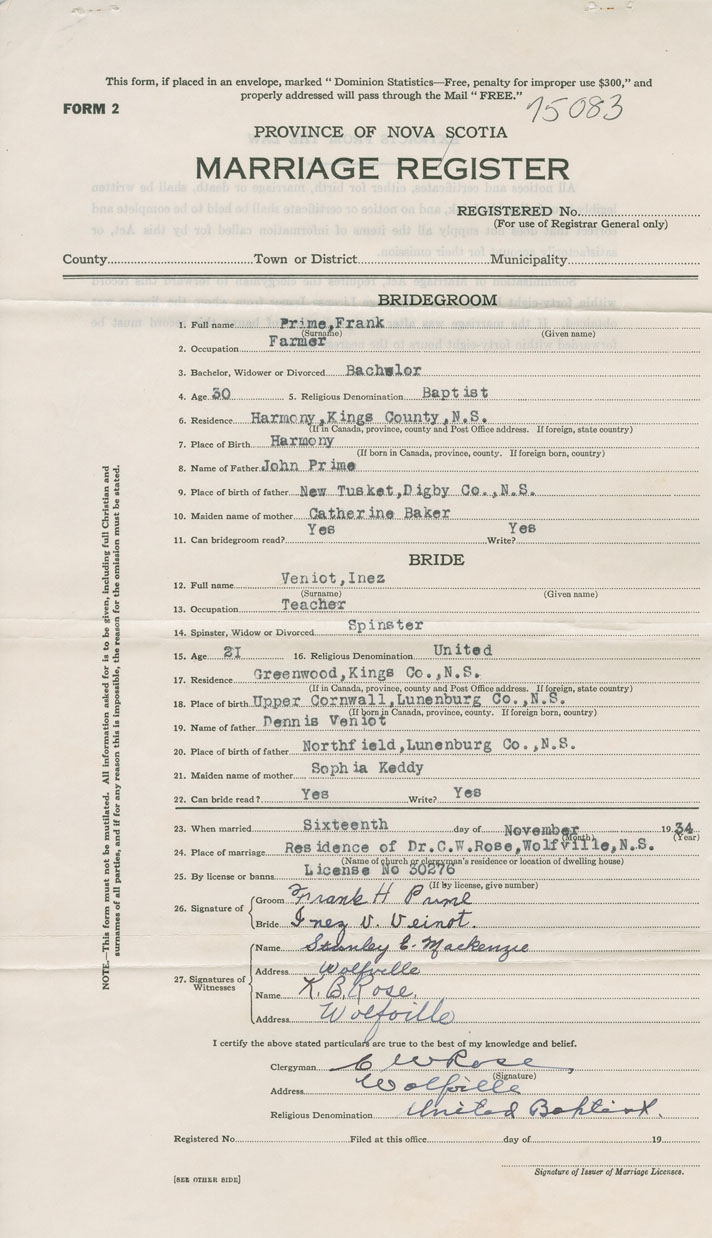 This form, if placed in an envelope, marked " Dominion Statistics—Free, penalty for improper use $300," and
properly addressed will pass through the Mail " FREE."
FORM 2
15083
PROVINCE OF NOVA SCOTIA
MARRIAGE REGISTER
REGISTERED No.
(For use of Registrar General only)
County Town or District Municipality
BRIDEGROOM
1. Full name Prime,Frank
(Surname) (Given name)
2. Occupation Farmer
3. Bachelor, Widower or Divorced Bachwlor
4. Age 30 5. Religious Denomination Baptist
6. Residence Harmony,Kings County,N.S.
(If in Canada, province, county and Post Office address. If foreign, state country)
7. Place of Birth Harmony
(If born in Canada, province, county. If foreign born, country)
8. Name of Father John Prime
9. Place of birth of father New Tusket,Digby Co.,N.S.
10. Maiden name of mother Catherine Baker
11. Can bridegroom read? Yes Write? Yes
BRIDE
12. Full name Veniot,Inez
(Surname) (Given name)
13. Occupation Teacher
14. Spinster, Widow or Divorced Spinster
15. Age 21 16. Religious Denomination United
17. Residence Greenwood,Kings Co.,N.S.
(If in Canada, province, county and Post Office address. If foreign, state country)
18. Place of birth Upper Cornwall,Lunenburg Co.,N.S.
(If born in Canada, province, county. If foreign born, country)
19. Name of father Dennis Veniot
20. Place of birth of father Northfield,Lunenburg Co.,N.S.
21. Maiden name of mother Sophia Keddy
22. Can bride read? Yes Write? Yes
23. When married Sixteenth day of November 1934
(Month) (Year)
24. Place of marriage Residence of Dr.C.W.Rose,Wolfville,N.S.
(Name of church or clergyman's residence or location of dwelling house)
25. By license or banns License No 30276
(If by license, give number)
26. Signature of
Groom Frank H Prime
Bride Inez V. Veinot.
27. Signatures of Witnesses
Name Stanley E. Mackenzie
Address Wolfville
Name K. B. Rose.
Address Wolfville
I certify the above stated particulars are true to the best of my knowledge and belief.
Clergyman C W Rose,
(Signature)
Address Wolfville
Religious Denomination United Baptist.
Registered No. Filed at this office day of 19
Signature of Issuer of Marriage Licenses.
[SEE OTHER SIDE]
NOTE.—This form must not be mutilated. All information asked for is to be given, including full Christian and
surnames of all parties, and if for any reason this is impossible, the reason for the omission must be stated.